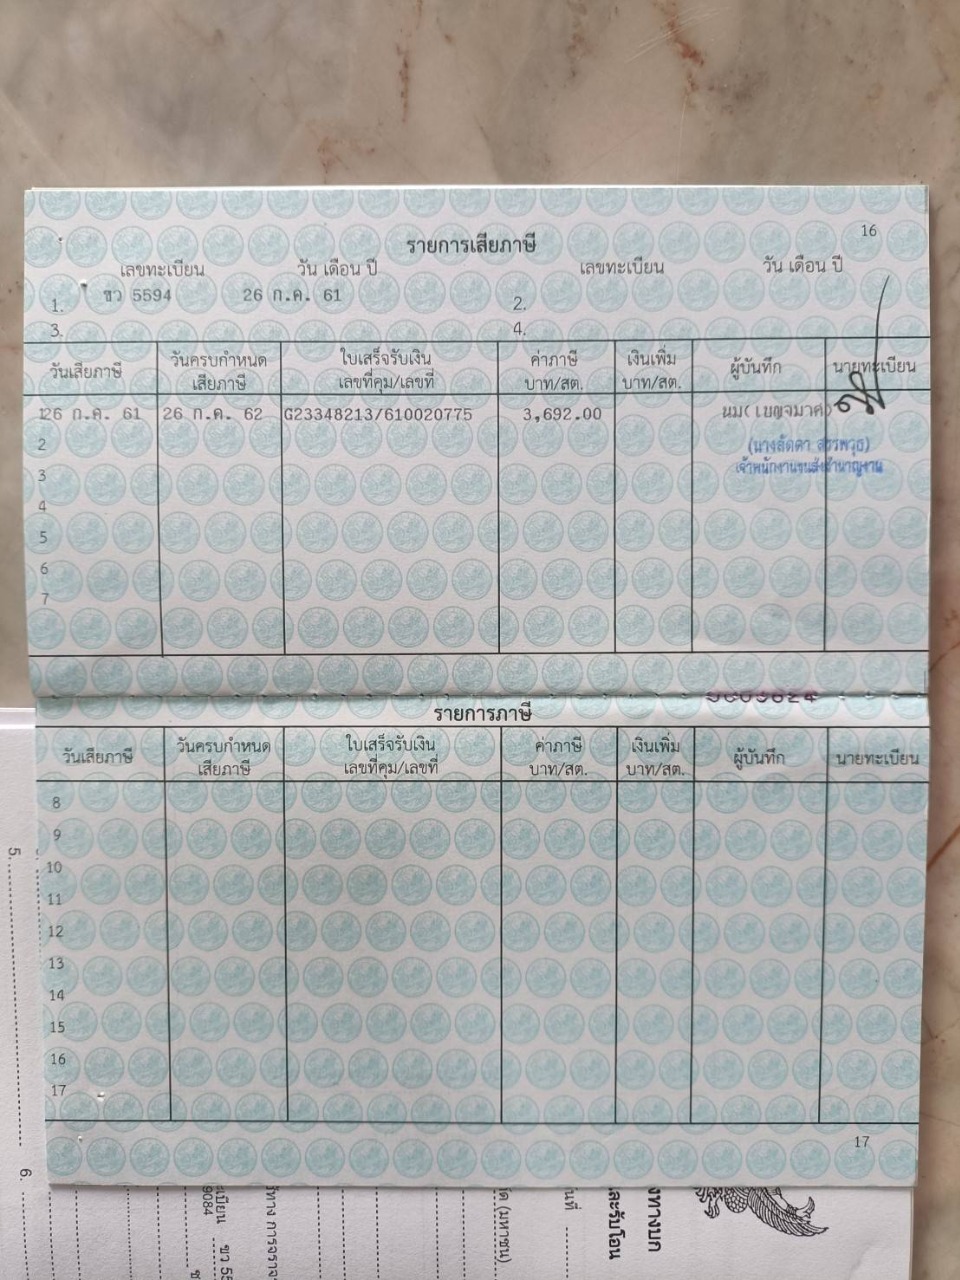 16
รายการเสียภาษี
เลขทะเบียน วัน เดือน ปี เลขทะเบียน วัน เดือน ปี
1. ขว 5594 26 ก.ค. 61 2.
3. 4.
วันเสียภาษี วันครบกำหนดเสียภาษี ใบเสร็จรับเงิน เลขที่คุม/เลขที่ ค่าภาษี บาท/สต. เงินเพิ่ม บาท/สต. ผู้บันทึก นายทะเบียน
1 26 ก.ค. 61 26 ก.ค. 62 G23348213/610020775 3,692.00 นม(เบญจมาศ)
2 (นางลัดดา สรรพวุธ)
3 เจ้าพนักงานขนส่งชำนาญงาน
4
5
6
7
รายการภาษี
วันเสียภาษี วันครบกำหนดเสียภาษี ใบเสร็จรับเงิน เลขที่คุม/เลขที่ ค่าภาษี บาท/สต. เงินเพิ่ม บาท/สต. ผู้บันทึก นายทะเบียน
8
9
10
11
12
13
14
15
16
17
17
5.
6.
9084
(มหาชน)
และรับโอน